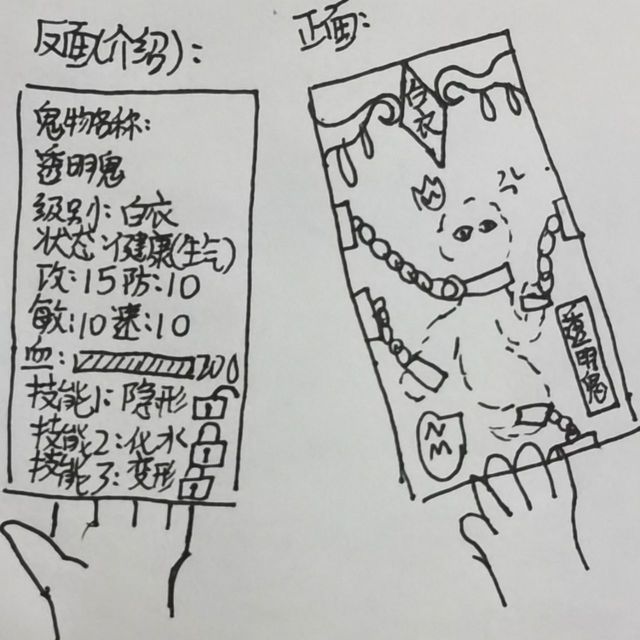 反面(介绍):
鬼物名称:
透明鬼
级别:白衣
状态:健康(生气)
攻:15 防:10
敏:10 速:10
血: 200
技能1:隐形
技能2:化水
技能3:变形
正面:
白衣
透明鬼
NM